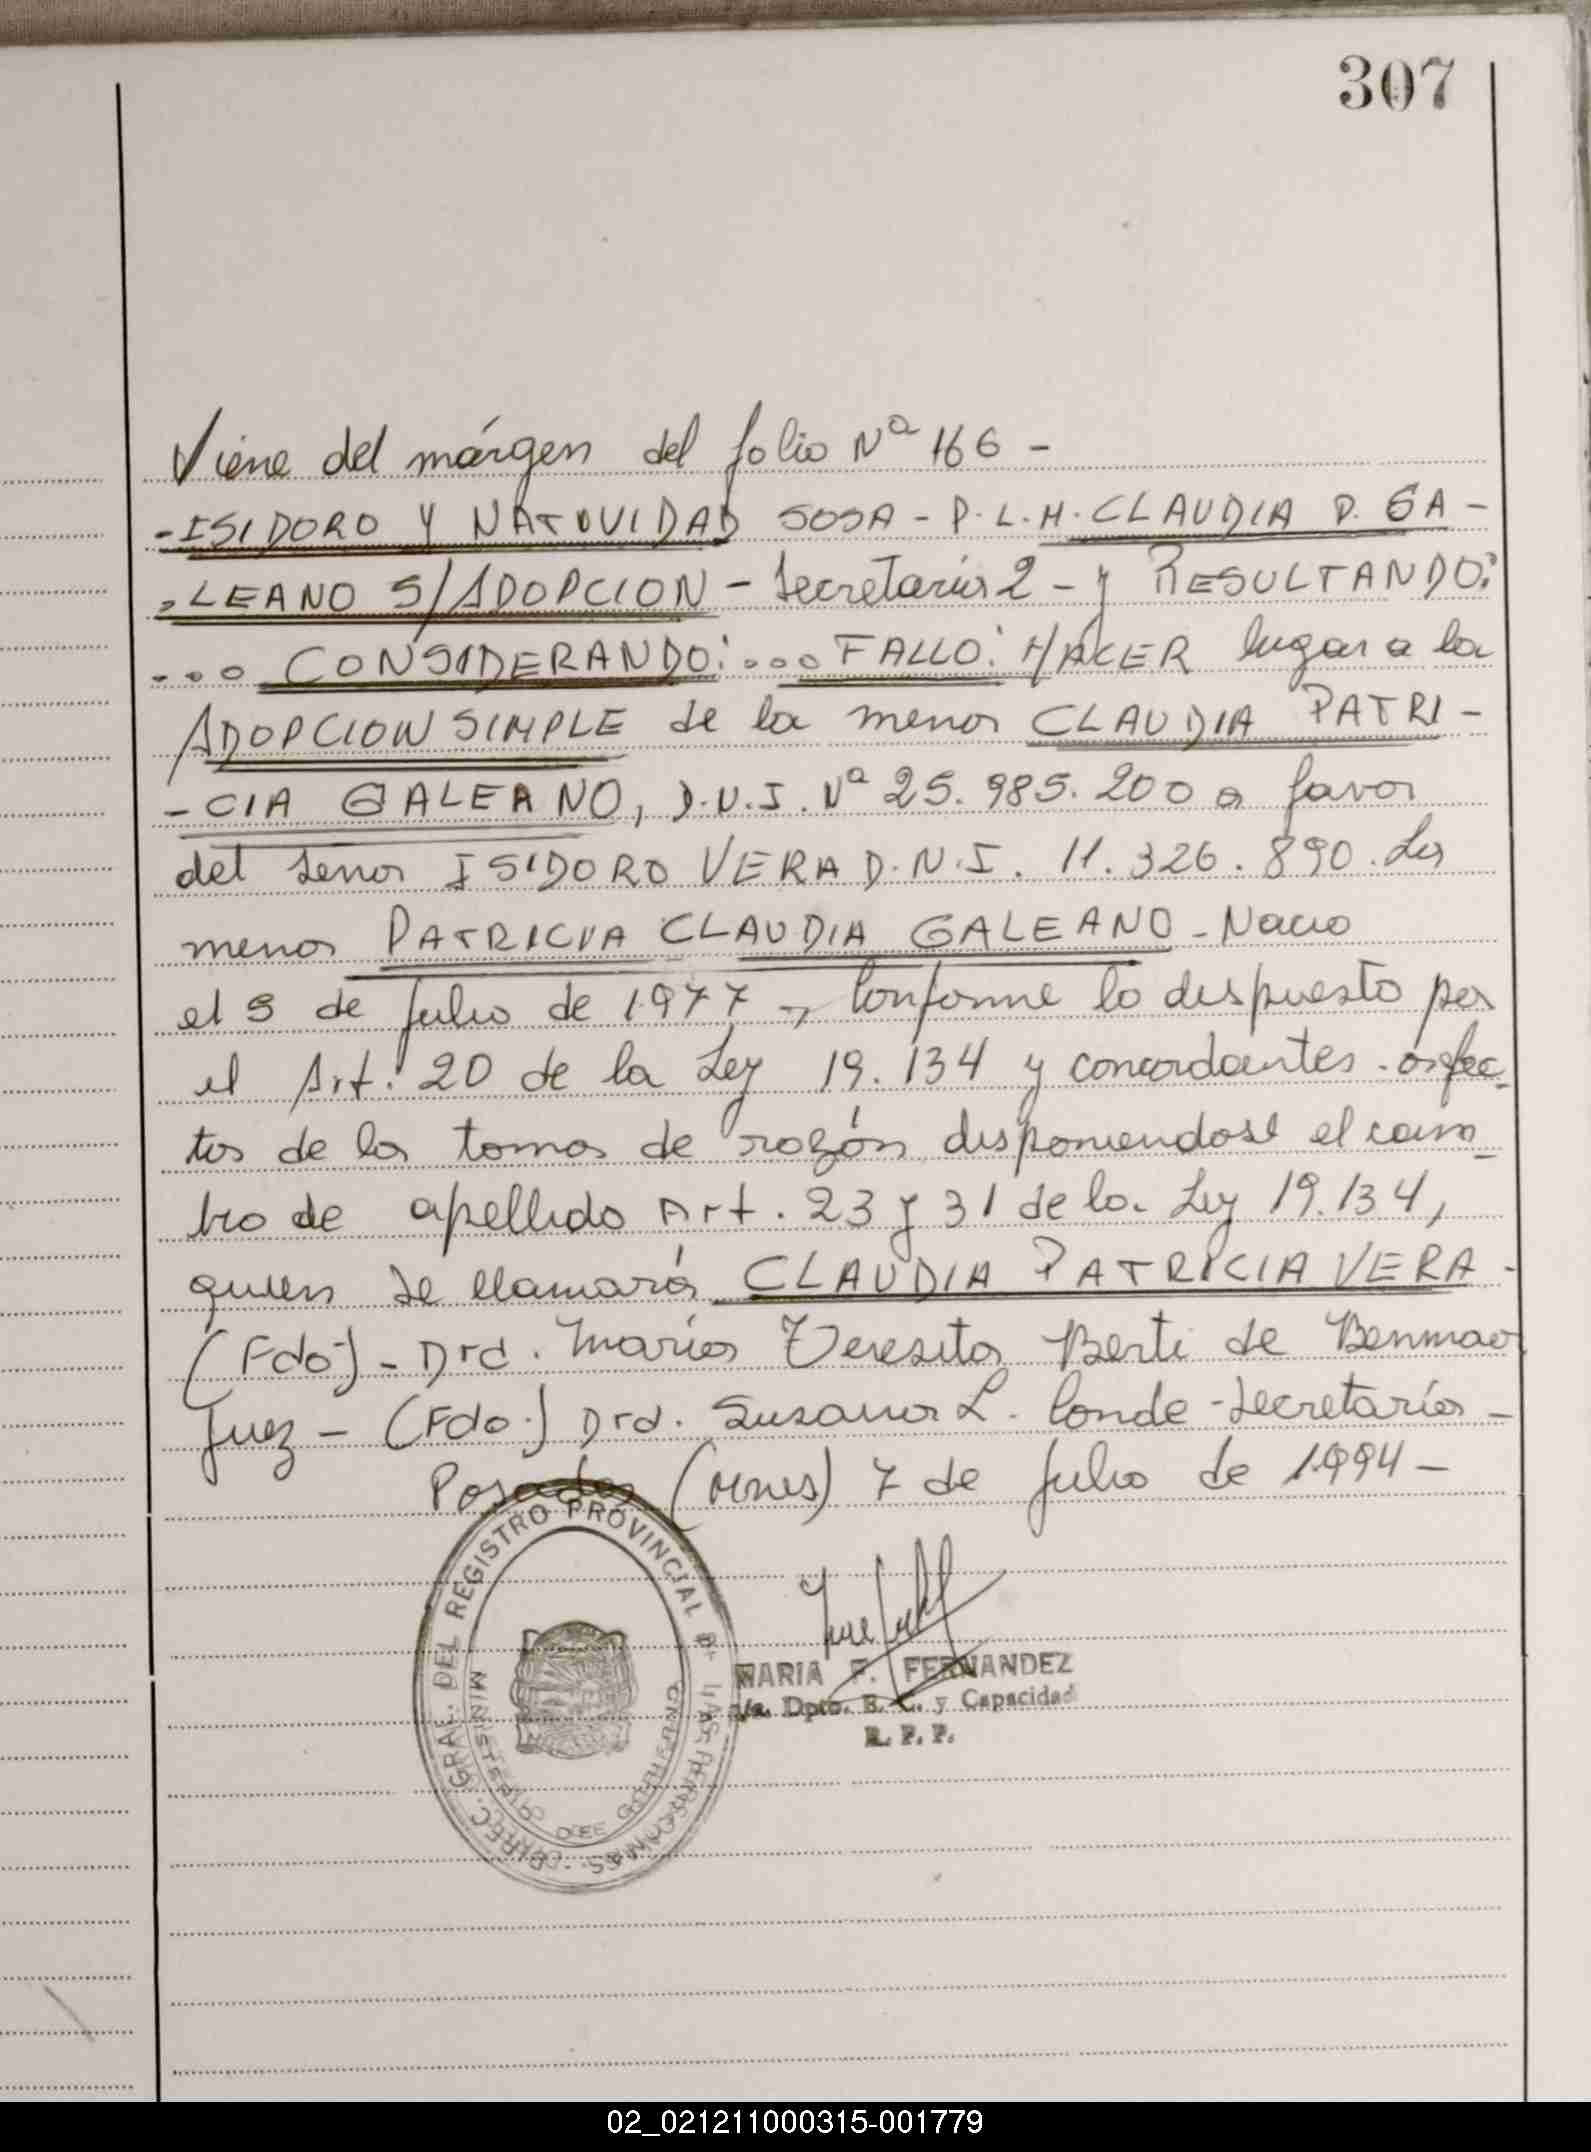 307
Viene del márgen del folio Nª 166 -
- ISIDORO Y NATIVIDAD SOSA - P.L.M. CLAUDIA P. GA -
- LEANO S/ADOPCION - Secretaria 2 - y RESULTANDO:
... CONSIDERANDO: ... FALLO: HACER lugar a la
ADOPCION SIMPLE de la menor CLAUDIA PATRI -
- CIA GALEANO, D.N.I. Nª 25.985.200 a favor
del señor ISIDORO VERA D.N.I. 11.326.890. La
menor PATRICIA CLAUDIA GALEANO - Nacio
el 9 de Julio de 1977 -, Conforme lo dispuesto por
el Art. 20 de la Ley 19.134 y concordantes - a efec_
tos de la toma de razón disponiendose el cam_
bio de apellido Art. 23 y 31 de la Ley 19.134,
quien se llamará CLAUDIA PATRICIA VERA -
(Fdo) - Dra. Maria Teresita Berti de Benmaor
Juez - (Fdo.) Dra. Susana L. Conde - Secretaria -
Posadas (Mnes) 7 de Julio de 1994 -
DIREC. GRAL. DEL REGISTRO PROVINCIAL DE LAS PERSONAS
MINISTERIO DE GOBIERNO
MARIA F. FERNANDEZ
Dpto. E. C. y Capacidad
R. P. P.
02_021211000315-001779